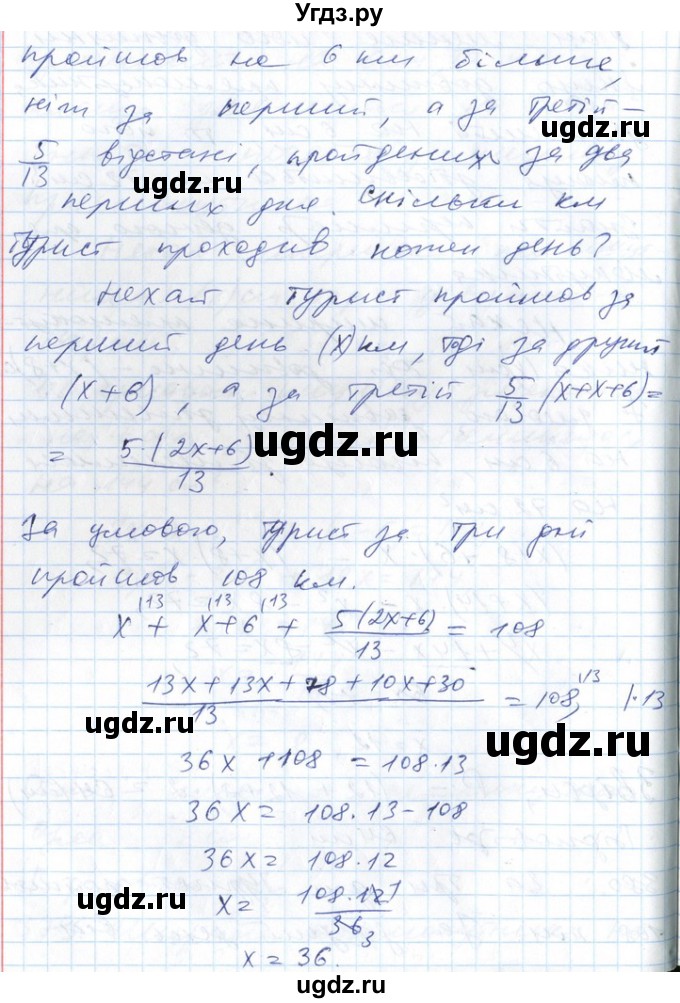 Угдз.ру
пройшов на 6 км більше,
ніж за перший, а за третій –
5/13 відстані, пройдених за два
перших дня. Скільки км
турист проходив кожен день?
Нехай турист пройшов за
перший день (x) км, тоді за другий
(x+6), а за третій 5/13 (x+x+6)=
= 5·(2x+6)/13.
За умовою, турист за три дні
пройшов 108 км.
x + x+6 + 5(2x+6)/13 = 108
(13x + 13x + 78 + 10x + 30)/13 = 108, |·13
36x + 108 = 108·13
36x = 108·13 – 108
36x = 108·12
x = 108·12/36
x = 36.
ugdz.ru
ugdz.ru
ugdz.ru
ugdz.ru
ugdz.ru
ugdz.ru